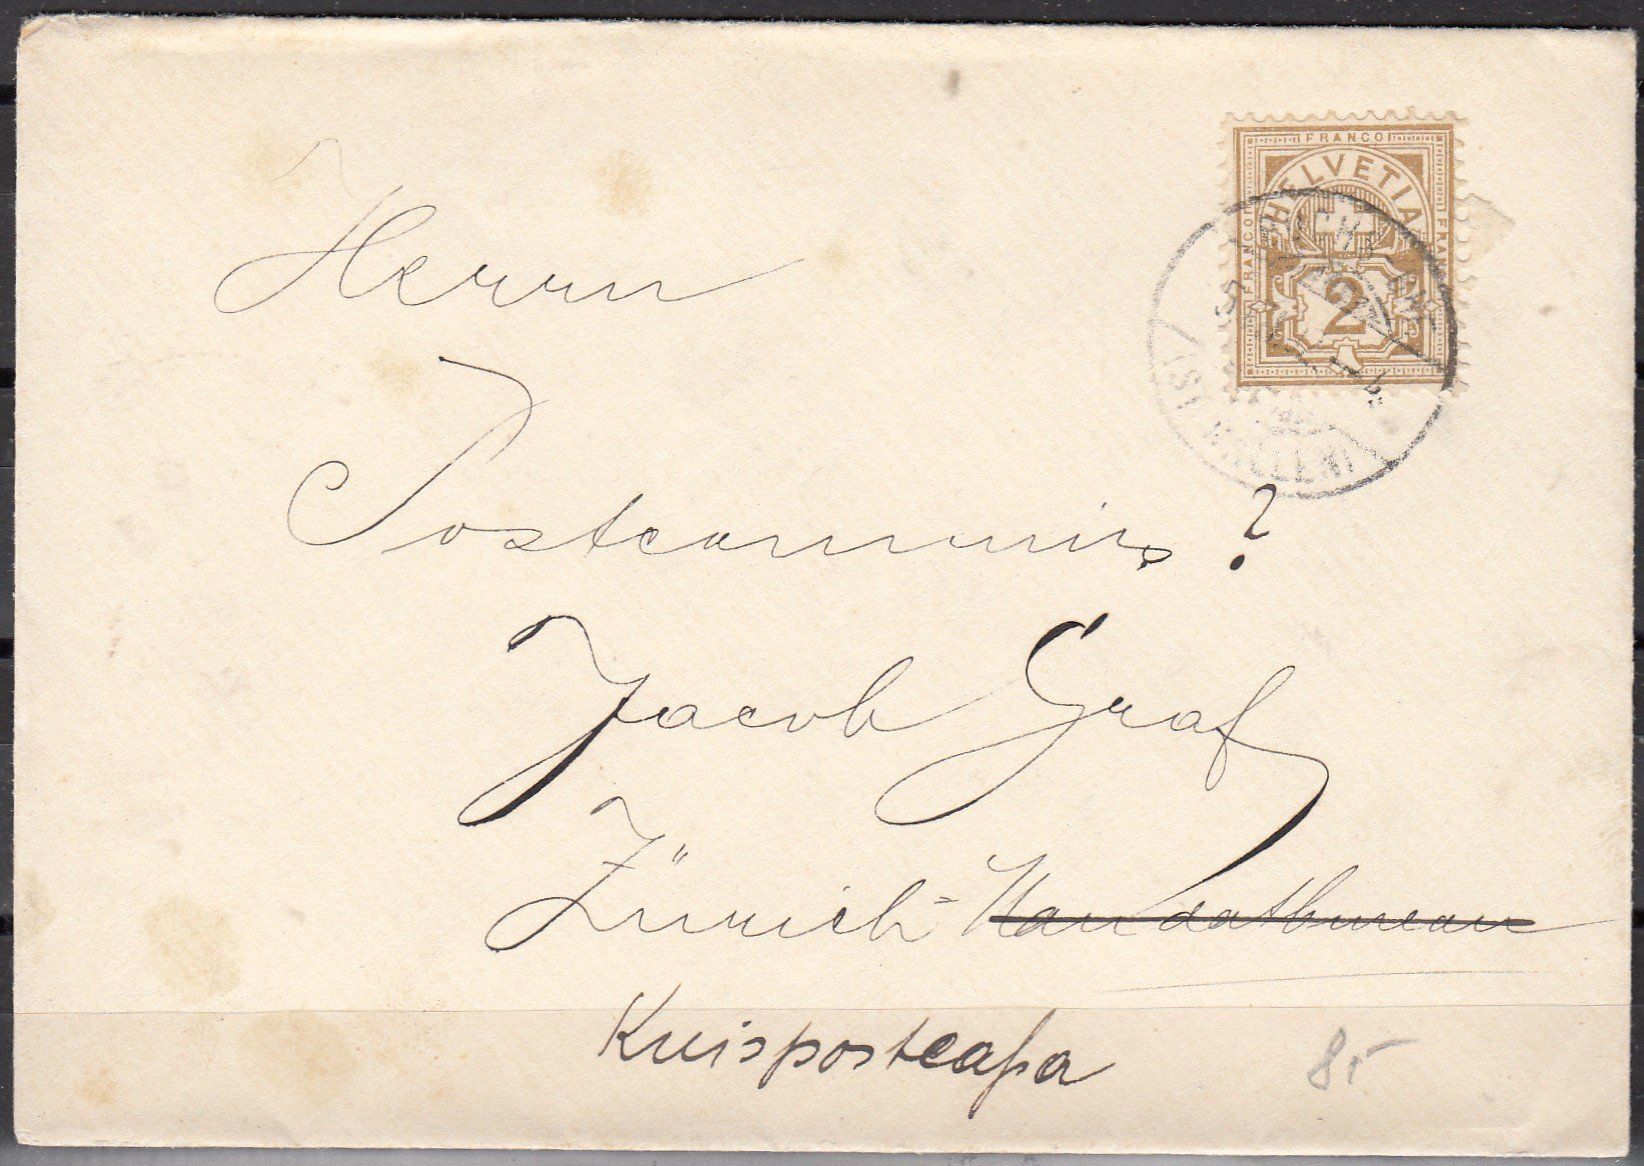 FRANCO
HELVETIA
FRANCO
FRANCO
2
Herrn
Postcommis ?
Jacob Graf
Zürich - Mandatbureau
Kreispostcassa
8.-